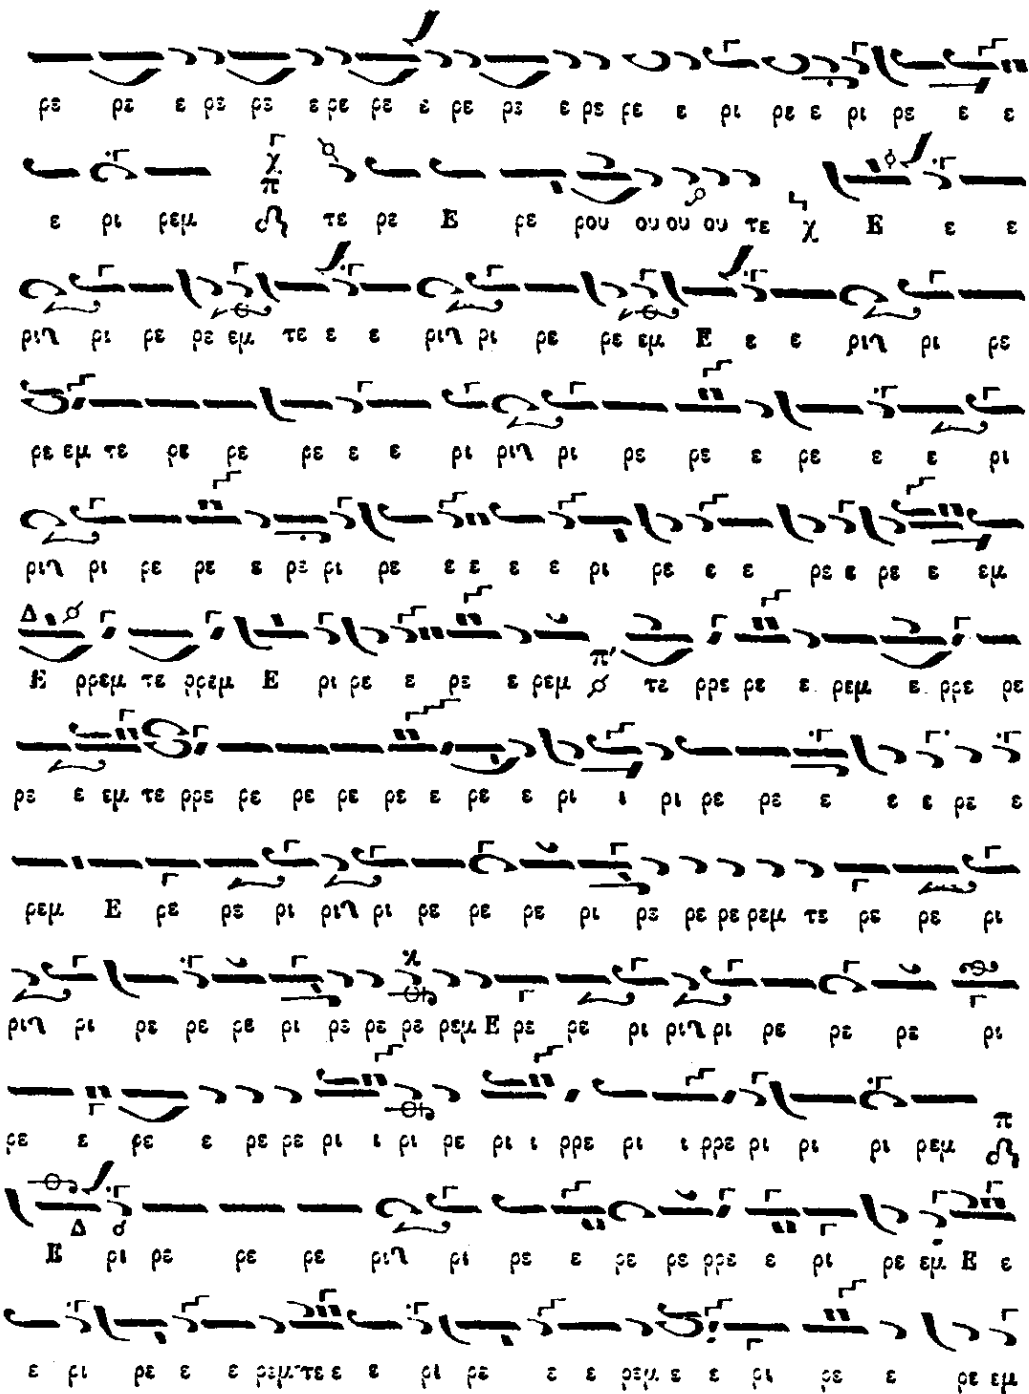 ρε ρε ε ρε ρε ε ρε ρε ε ρε ρε ε ρε ρε ε ρι ρε ε ρι ρε ε ε
ε ρι ρεμ π τε ρε Ε ρε ρου ου ου ου τε χ Ε ε ε
ριγ ρι ρε ρε εμ τε ε ε ριγ ρι ρε ρε εμ Ε ε ε ριγ ρι ρε
ρε εμ τε ρε ρε ρε ε ε ρι ριγ ρι ρε ρε ε ρε ε ε ρι
ριγ ρι ρε ρε ε ρε ρι ρε ε ε ε ε ρι ρε ε ε ρε ε ρε ε εμ
Ε ρρεμ τε ρρεμ Ε ρι ρε ε ρε ε ρεμ π τε ρρε ρε ε ρεμ ε ρρε ρε
ρε ε εμ τε ρρε ρε ρε ρε ρε ε ρε ε ρι ι ρι ρε ρε ε ε ε ρε ε
ρεμ Ε ρε ρε ρι ριγ ρι ρε ρε ρε ρι ρε ρε ρε ρεμ τε ρε ρε ρι
ριγ ρι ρε ρε ρε ρι ρε ρε ρε ρεμ Ε ρε ρε ρι ριγ ρι ρε ρε ρε ρι
ρε ε ρε ε ρε ρε ρι ι ρι ρε ρι ι ρρε ρι ι ρρε ρι ρι ρι ρεμ π
Ε ρι ρε ρε ρε ριγ ρι ρε ε ρε ρε ρρε ε ρι ρε εμ Ε ε
ε ρι ρε ε ε ρεμ τε ε ε ρι ρε ε ε ρεμ ε ε ρι ρε ε ρε εμ